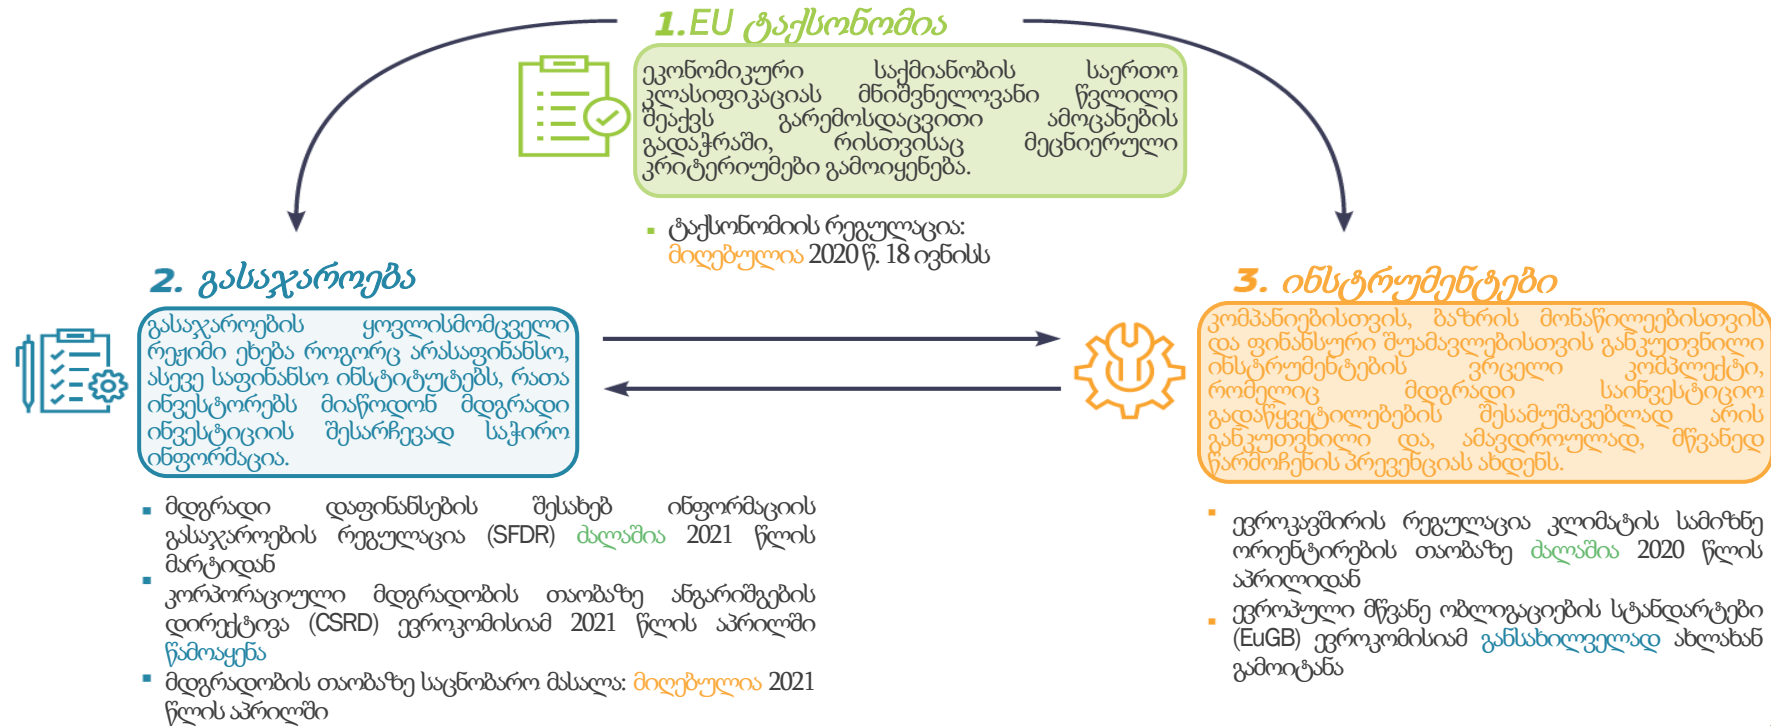 1.EU ტაქსონომია
ეკონომიკური საქმიანობის საერთო
კლასიფიკაციას მნიშვნელოვანი წვლილი
შეაქვს გარემოსდაცვითი ამოცანების
გადაჭრაში, რისთვისაც მეცნიერული
კრიტერიუმები გამოიყენება.
▪ ტაქსონომიის რეგულაცია:
მიღებულია 2020 წ. 18 ივნისს
2. გასაჯაროება
გასაჯაროების ყოვლისმომცველი
რეჟიმი ეხება როგორც არასაფინანსო,
ასევე საფინანსო ინსტიტუტებს, რათა
ინვესტორებს მიაწოდონ მდგრადი
ინვესტიციის შესარჩევად საჭირო
ინფორმაცია.
▪ მდგრადი დაფინანსების შესახებ ინფორმაციის
გასაჯაროების რეგულაცია (SFDR) ძალაშია 2021 წლის
მარტიდან
▪ კორპორაციული მდგრადობის თაობაზე ანგარიშგების
დირექტივა (CSRD) ევროკომისიამ 2021 წლის აპრილში
წამოაყენა
▪ მდგრადობის თაობაზე საცნობარო მასალა: მიღებულია 2021
წლის აპრილში
3. ინსტრუმენტები
კომპანიებისთვის, ბაზრის მონაწილეებისთვის
და ფინანსური შუამავლებისთვის განკუთვნილი
ინსტრუმენტების ვრცელი კომპლექტი,
რომელიც მდგრადი საინვესტიციო
გადაწყვეტილებების შესამუშავებლად არის
განკუთვნილი და, ამავდროულად, მწვანედ
წარმოჩენის პრევენციას ახდენს.
▪ ევროკავშირის რეგულაცია კლიმატის სამიზნე
ორიენტირების თაობაზე ძალაშია 2020 წლის
აპრილიდან
▪ ევროპული მწვანე ობლიგაციების სტანდარტები
(EuGB) ევროკომისიამ განსახილველად ახლახან
გამოიტანა